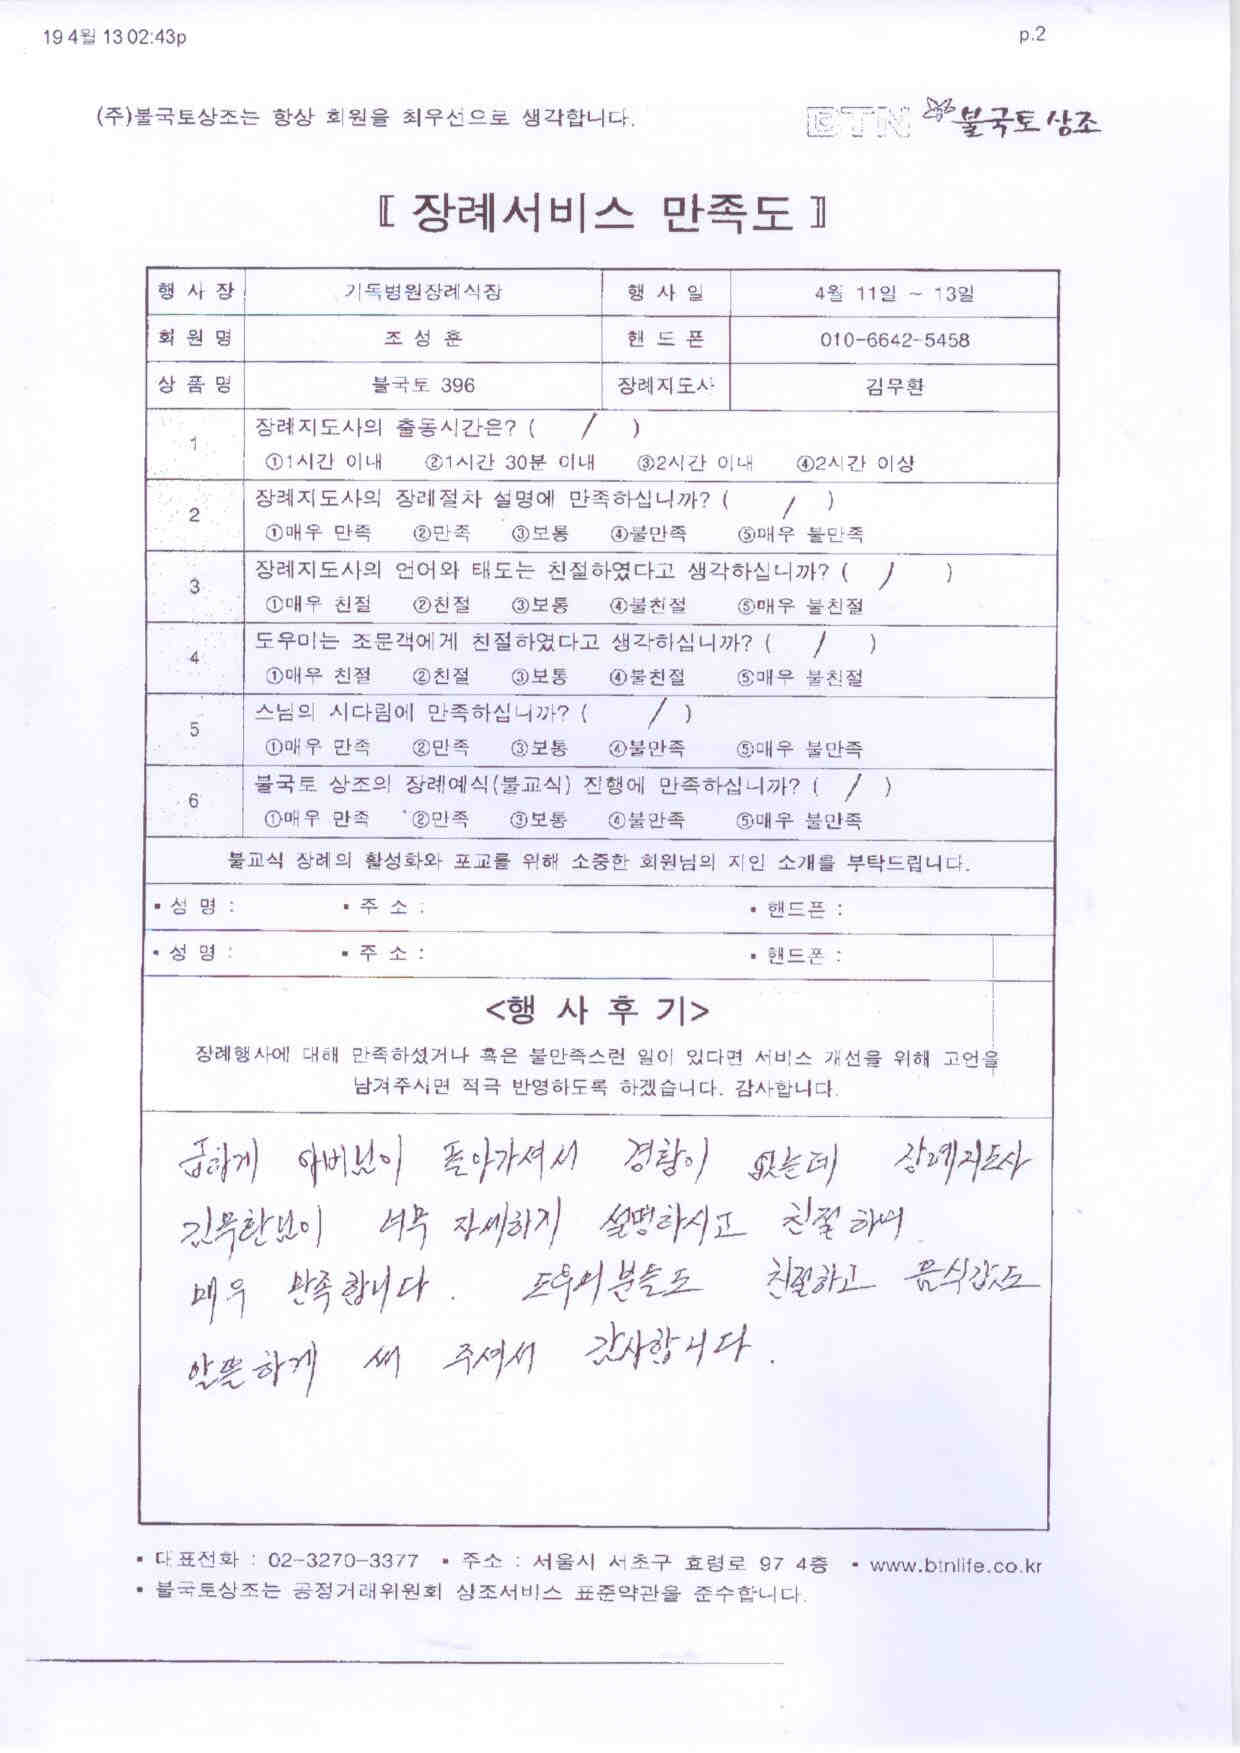 19 4월 13 02:43p p.2
(주)불국토상조는 항상 회원을 최우선으로 생각합니다. BTN 불국토상조
〖 장례서비스 만족도 〗
행 사 장 기독병원장례식장 행 사 일 4월 11일 ~ 13일
회 원 명 조 성 훈 핸 드 폰 010-6642-5458
상 품 명 불국토 396 장례지도사 김무환
1 장례지도사의 출동시간은? ( / )
①1시간 이내 ②1시간 30분 이내 ③2시간 이내 ④2시간 이상
2 장례지도사의 장례절차 설명에 만족하십니까? ( / )
①매우 만족 ②만족 ③보통 ④불만족 ⑤매우 불만족
3 장례지도사의 언어와 태도는 친절하였다고 생각하십니까? ( / )
①매우 친절 ②친절 ③보통 ④불친절 ⑤매우 불친절
4 도우미는 조문객에게 친절하였다고 생각하십니까? ( / )
①매우 친절 ②친절 ③보통 ④불친절 ⑤매우 불친절
5 스님의 시다림에 만족하십니까? ( / )
①매우 만족 ②만족 ③보통 ④불만족 ⑤매우 불만족
6 불국토 상조의 장례예식(불교식) 진행에 만족하십니까? ( / )
①매우 만족 ②만족 ③보통 ④불만족 ⑤매우 불만족
불교식 장례의 활성화와 포교를 위해 소중한 회원님의 지인 소개를 부탁드립니다.
▪ 성 명 : ▪ 주 소 : ▪ 핸드폰 :
▪ 성 명 : ▪ 주 소 : ▪ 핸드폰 :
<행 사 후 기>
장례행사에 대해 만족하셨거나 혹은 불만족스런 일이 있다면 서비스 개선을 위해 고언을
남겨주시면 적극 반영하도록 하겠습니다. 감사합니다.
급하게 아버님이 돌아가셔서 경황이 없는데 장례지도사
김무환님이 너무 자세하게 설명하시고 친절하며
매우 만족합니다. 도우미분들도 친절하고 음식값도
알뜰하게 써 주셔서 감사합니다.
▪ 대표전화 : 02-3270-3377 ▪ 주소 : 서울시 서초구 효령로 97 4층 ▪ www.btnlife.co.kr
▪ 불국토상조는 공정거래위원회 상조서비스 표준약관을 준수합니다.